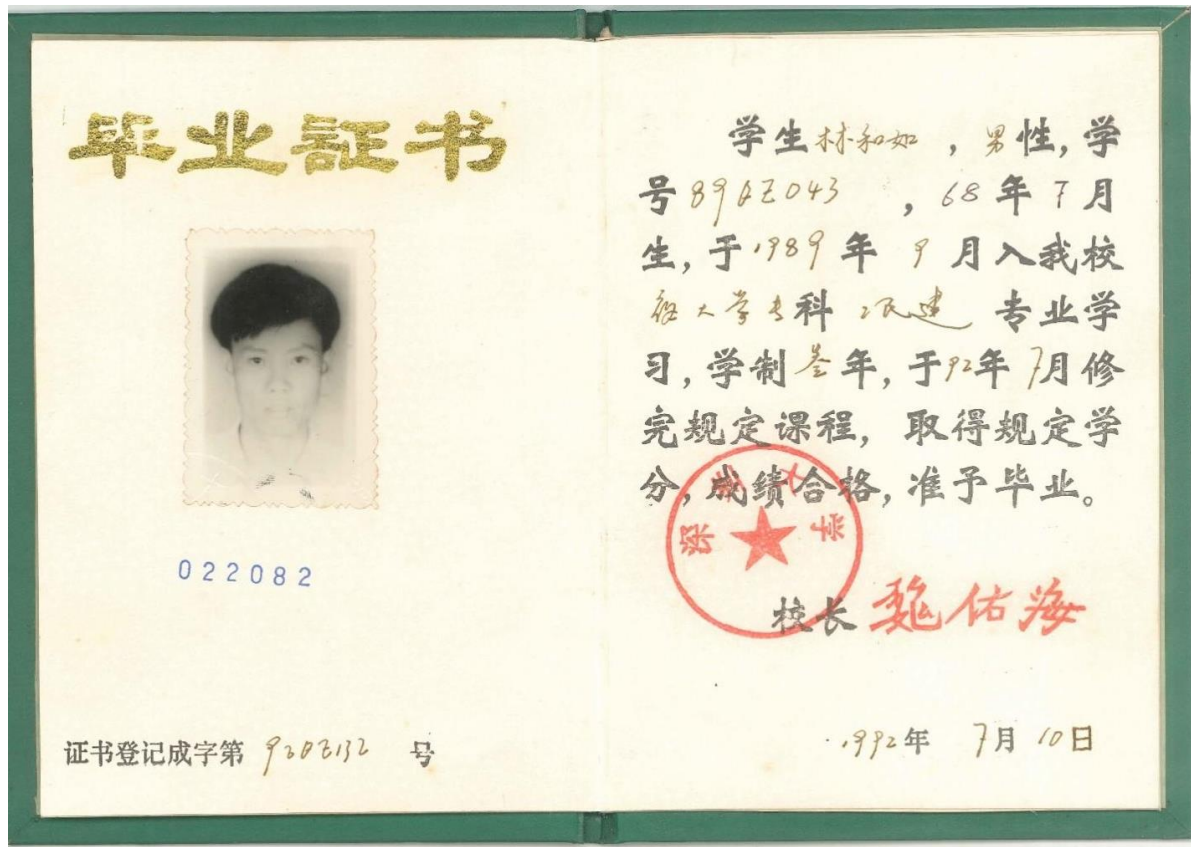 毕业証书
022082
证书登记成字第 920Z132 号
学生林和如，男性，学
号89AZ043，68年7月
生，于1989年9月入我校
大学专科 民建 专业学
习，学制叁年，于92年7月修
完规定课程，取得规定学
分，成绩合格，准予毕业。
深圳大学
校长 魏佑海
1992年 7月 10日